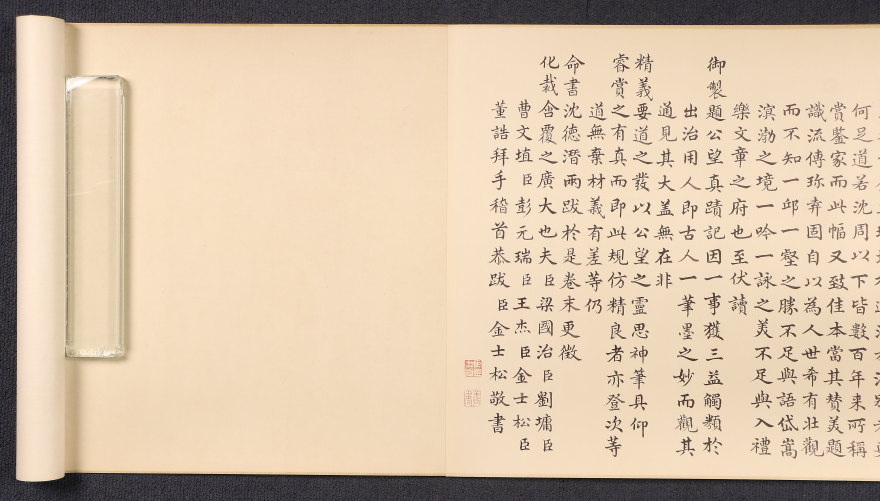 何足道若沈周以下皆數百年来所稱
賞鑒家而此幅又致佳本當其賛美題
識流傳珎弆固自以為人世希有壮觀
而不知一邱一壑之勝不足與語岱嵩
溟渤之境一吟一詠之美不足與入禮
樂文章之府也至伏讀
御製題公望真蹟記因一事獲三益觸類於
出治用人即古人一筆墨之妙而觀其
通見其大盖無在非
精義要道之發以公望之靈思神筆具仰
睿賞之有真而即此規仿精良者亦登次等
道無棄材義有差等仍
命書沈徳潛兩跋於是卷末更徴
化裁含覆之廣大也夫臣梁國治臣劉墉臣
曹文埴臣彭元瑞臣王杰臣金士松臣
董誥拜手稽首恭跋臣金士松敬書